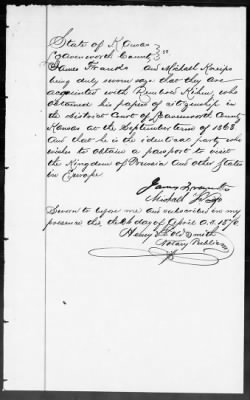 State of Kansas
Leavenworth County } ss
James Franks and Michael Kneipe
being duly sworn says that they are
acquainted with Rembert Kihm, who
obtained his papers of citizenship in
the district Court of Leavenworth County
Kansas at the September term of 1868
and that he is the identical party who
wishes to obtain a passport to visit
the Kingdom of Prussia and other States
in Europe
James Franks
Michael
Sworn to before me and subscribed in my
presence the day of April A.D. 187
Henry Goldsmith
Notary Public